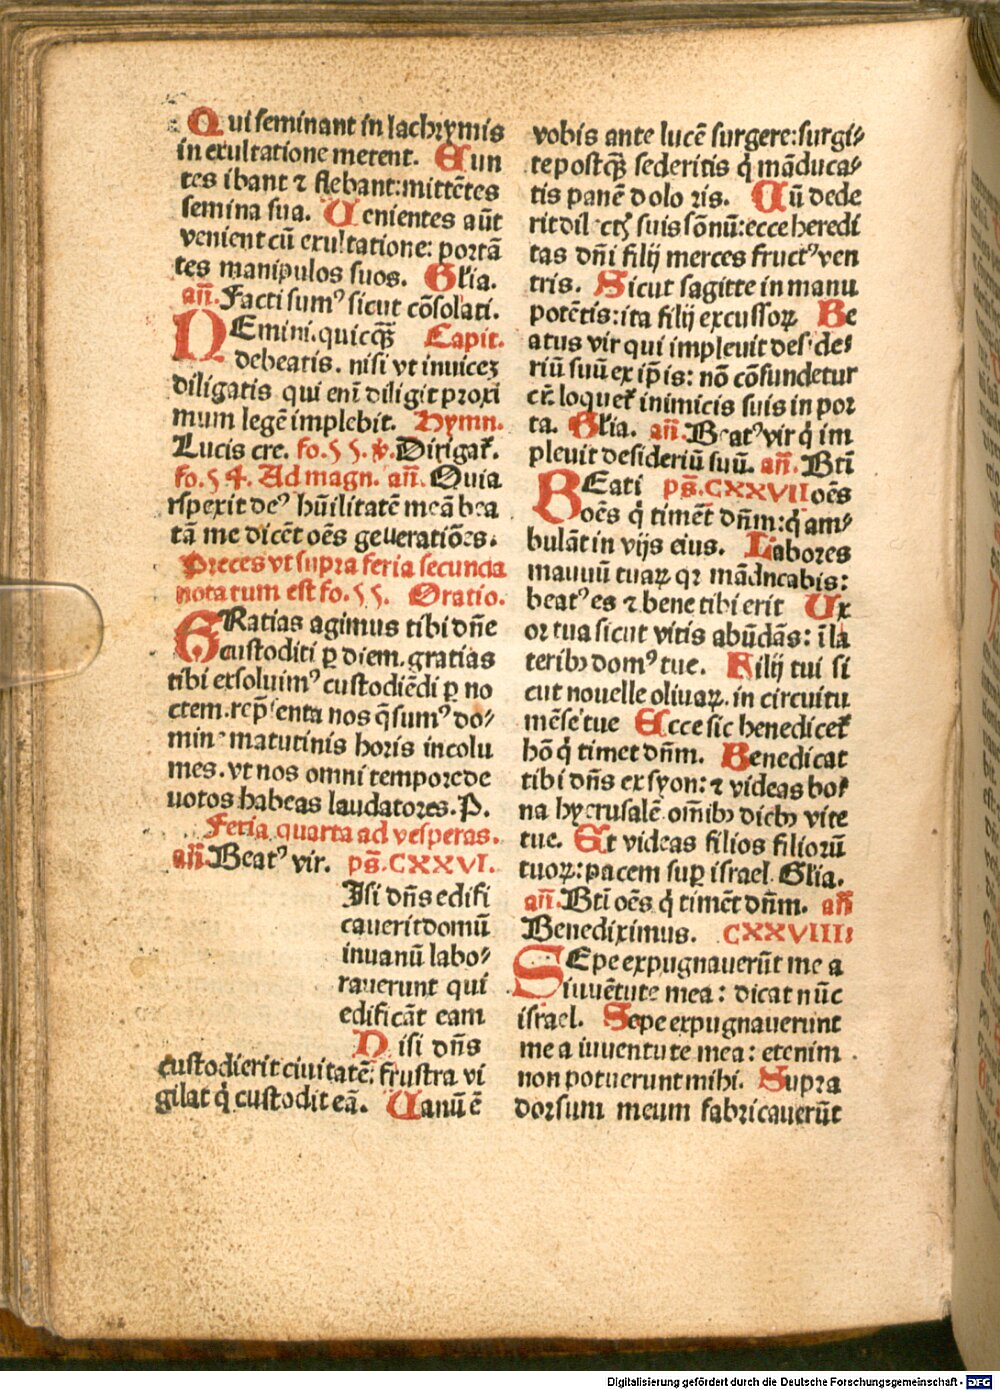 Qui seminant in lachrymis
in exultatione metent. Eun
tes ibant ⁊ flebant: mittētes
semina sua. Uenientes aūt
venient cū exultatione: portā
tes manipulos suos. Glīa.
añ. Facti sumꝰ sicut cōsolati.
NEmini. quicq̄ʒ Capit.
debeatis. nisi vt inuiceʒ
diligatis qui enī diligit proxi
mum legē implebit. Hymn.
Lucis cre. fo.55.⁊. Dirigaṫ.
fo.54. Ad magn. añ. Quia
rspexit deꝰ hūilitatē meā bea
tā me dicēt oēs geueratiōes.
Preces vt supra feria secunda
notatum est fo.55. Oratio.
GRatias agimus tibi dn̄e
custoditi ꝑ diem. gratias
tibi exsoluimꝰ custodiēdi ꝑ no
ctem. rep̄senta nos q̄sumꝰ do⸗
mine matutinis horis incolu
mes. vt nos omni tempore de
uotos habeas laudatores. P.
Feria quarta ad vesperas.
añ. Beatꝰ vir. ps̄. CXXVI.
Isi dn̄s edifi
cauerit domū
inuanū labo⸗
rauerunt qui
edificāt eam
Nisi dn̄s
custodierit ciuitatē: frustra vi
gilat q̇ custodit eā. Uanū ē
vobis ante lucē surgere: surgi⸗
te postq̄ʒ sederitis q̇ māduca⸗
tis panē dolo ris. Cū dede
rit dilectʒ suis sōnū: ecce heredi
tas dn̄i filij merces fructꝰ ven
tris. Sicut sagitte in manu
potētis: ita filij excussoꝝ Be
atus vir qui impleuit deside⸗
riū suū ex ip̄is: nō cōsundetur
cū loqueṫ inimicis suis in por
ta. Glīa. añ. Beatꝰ vir q̇ im
pleuit desideriū suū. añ. Bti
BEati ps̄. CXXVII oēs
oēs q̇ timēt dn̄m: q̇ am⸗
bulāt in vijs eius. Labores
mauuū tuaꝝ qꝛ mādncabis:
beatꝰ es ⁊ bene tibi erit Ux
or tua sicut vitis abūdās: ī la
teribꝫ domꝰ tue. Filij tui si
cut nouelle oliuaꝝ. in circuitu
mēse tue Ecce sic benediceṫ
hō q̇ timet dn̄m. Benedicat
tibi dn̄s ex syon: ⁊ videas bo⸗
na hyerusalē om̄ibꝫ diebꝫ vite
tue. Et videas filios filiorū
tuoꝝ: pacem suꝑ israel. Glīa.
añ. Bti oēs q̇ timēt dn̄m. añ
Benediximus. CXXVIII:
SEpe expugnauerūt me a
iuuētute mea: dicat nūc
israel. Sepe expugnauerunt
me a iuuentute mea: etenim
non potuerunt mihi. Supra
dorsum meum fabricauerūt
Digitalisierung gefördert durch die Deutsche Forschungsgemeinschaft - DFG